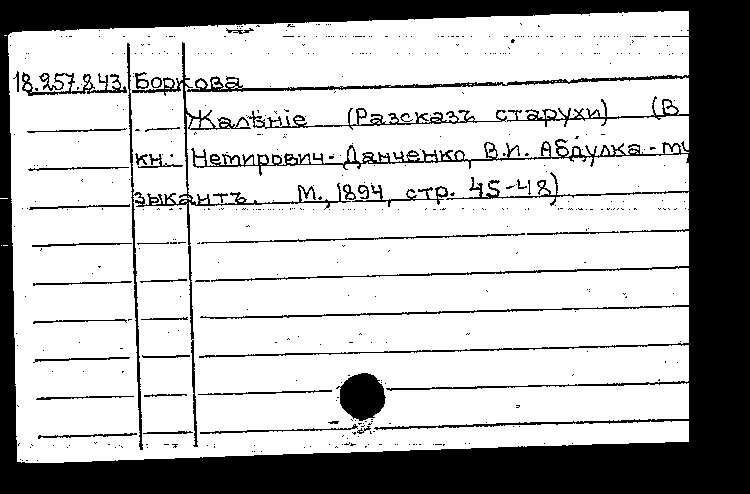 18.257.8.43. Боркова
Жалѣніе (Разсказъ старухи) (В
кн.: Немирович-Данченко, В.И. Абдулка-му
зыкантъ. М., 1894, стр. 45-48)